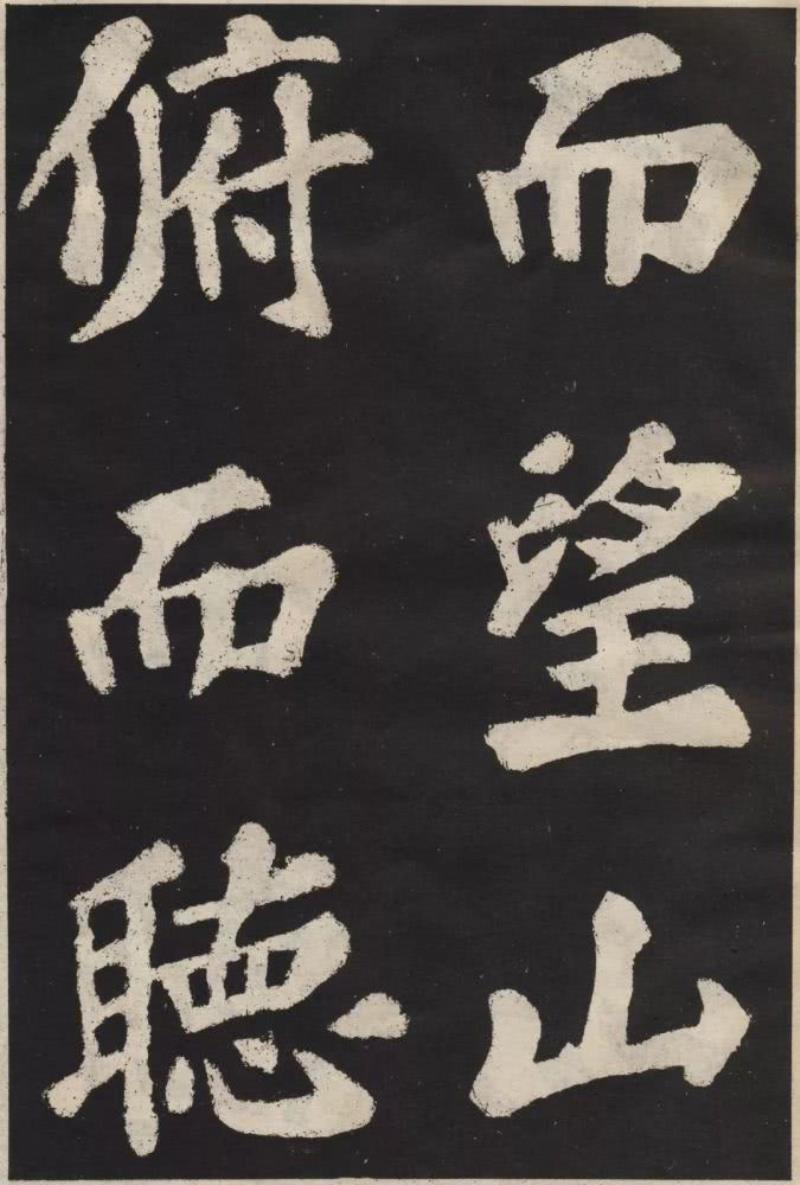 而望山
俯而聽